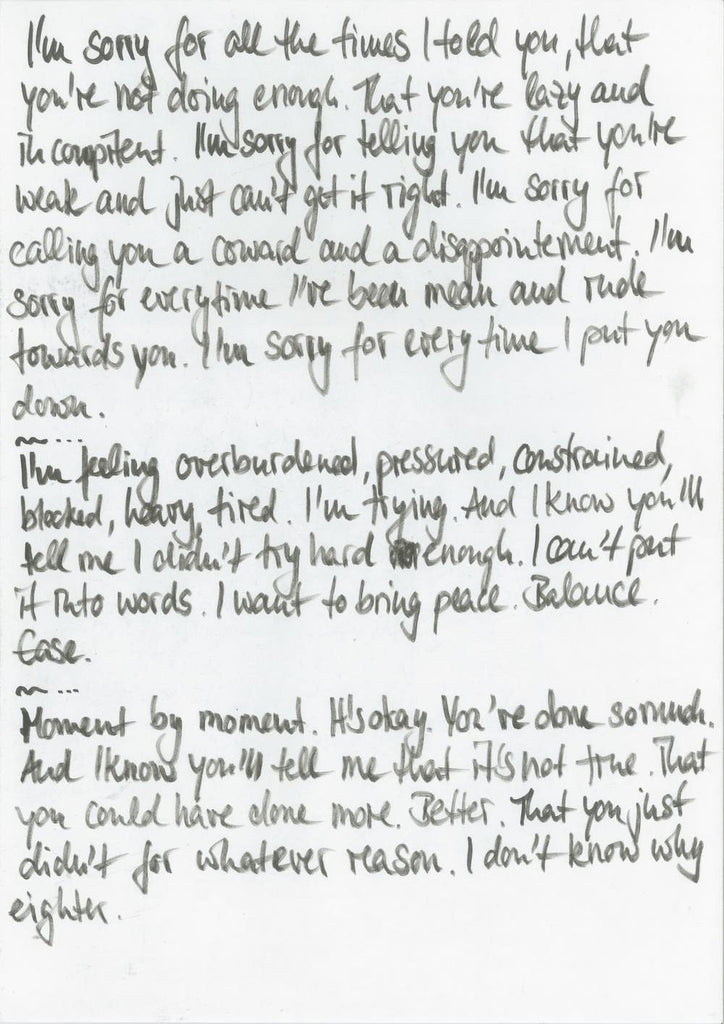 I'm sorry for all the times I told you, that
you're not doing enough. That you're lazy and
incompitent. I'm sorry for telling you that you're
weak and just can't get it right. I'm sorry for
calling you a coward and a disappointement. I'm
sorry for everytime I've been mean and rude
towards you. I'm sorry for every time I put you
down.
~ ...
I'm feeling overburdened, pressured, constrained,
blocked, heavy, tired. I'm trying. And I know you'll
tell me I didn't try hard enough. I can't put
it into words. I want to bring peace. Balance.
Ease.
~ ...
Moment by moment. It's okay. You're done so much.
And I know you'll tell me that it's not true. That
you could have done more. Better. That you just
didn't for whatever reason. I don't know why
eighter.